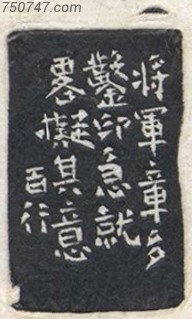 750747.com
将軍章多
鑿印急就
畧擬其意
百行